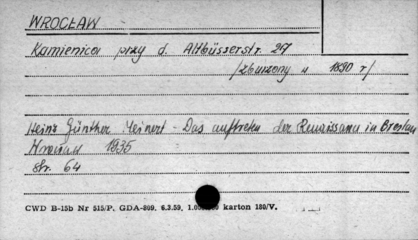 WROCŁAW
Kamienica przy d. Altbüsserstr. 27
/zburzony w 1890 r/
Heinz Günther Meinert - Das auftreten der Renaissance in Breslau
Wrocław 1935
Str. 64
CWD B-15b Nr 515/P. GDA-869. 6.3.59. karton 180/V.